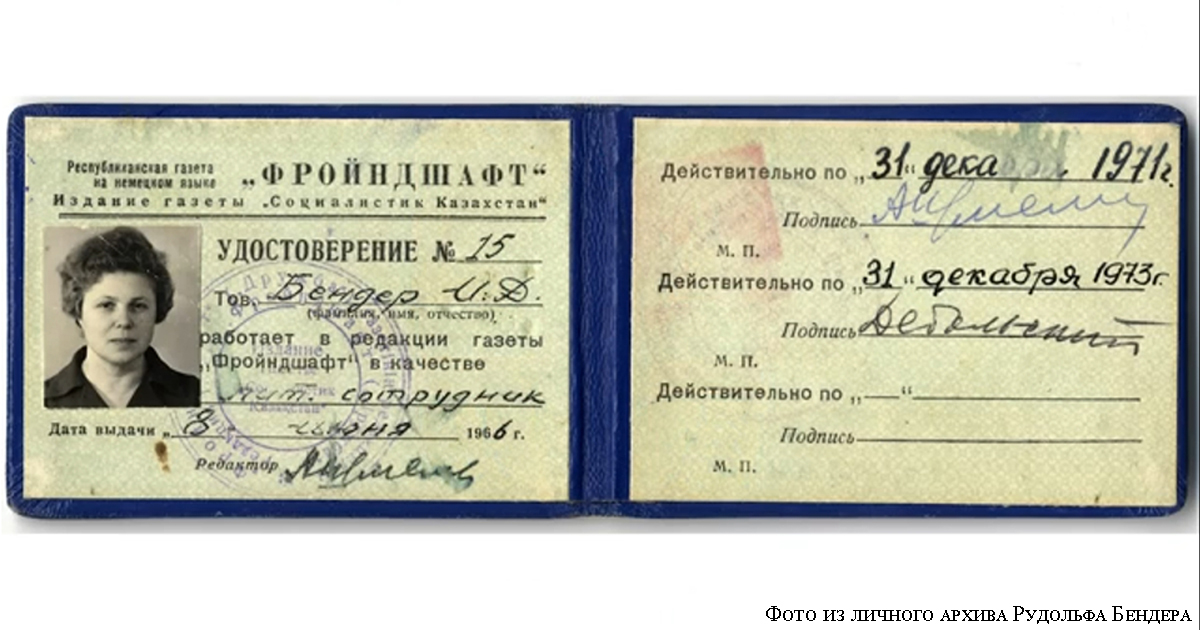 Республиканская газета
на немецком языке „ФРОЙНДШАФТ“
Издание газеты „Социалистик Казахстан“
УДОСТОВЕРЕНИЕ № 15
Тов. Бендер И.Д.
(фамилия, имя, отчество)
работает в редакции газеты
„Фройндшафт“ в качестве
лит. сотрудник
Дата выдачи „8 июня 1966 г.
Редактор
Действительно по „31“ декабря 1971г.
Подпись
М. П.
Действительно по „31“ декабря 1973г.
Подпись Дебольский
М. П.
Действительно по „—“
Подпись
М. П.
Фото из личного архива Рудольфа Бендера